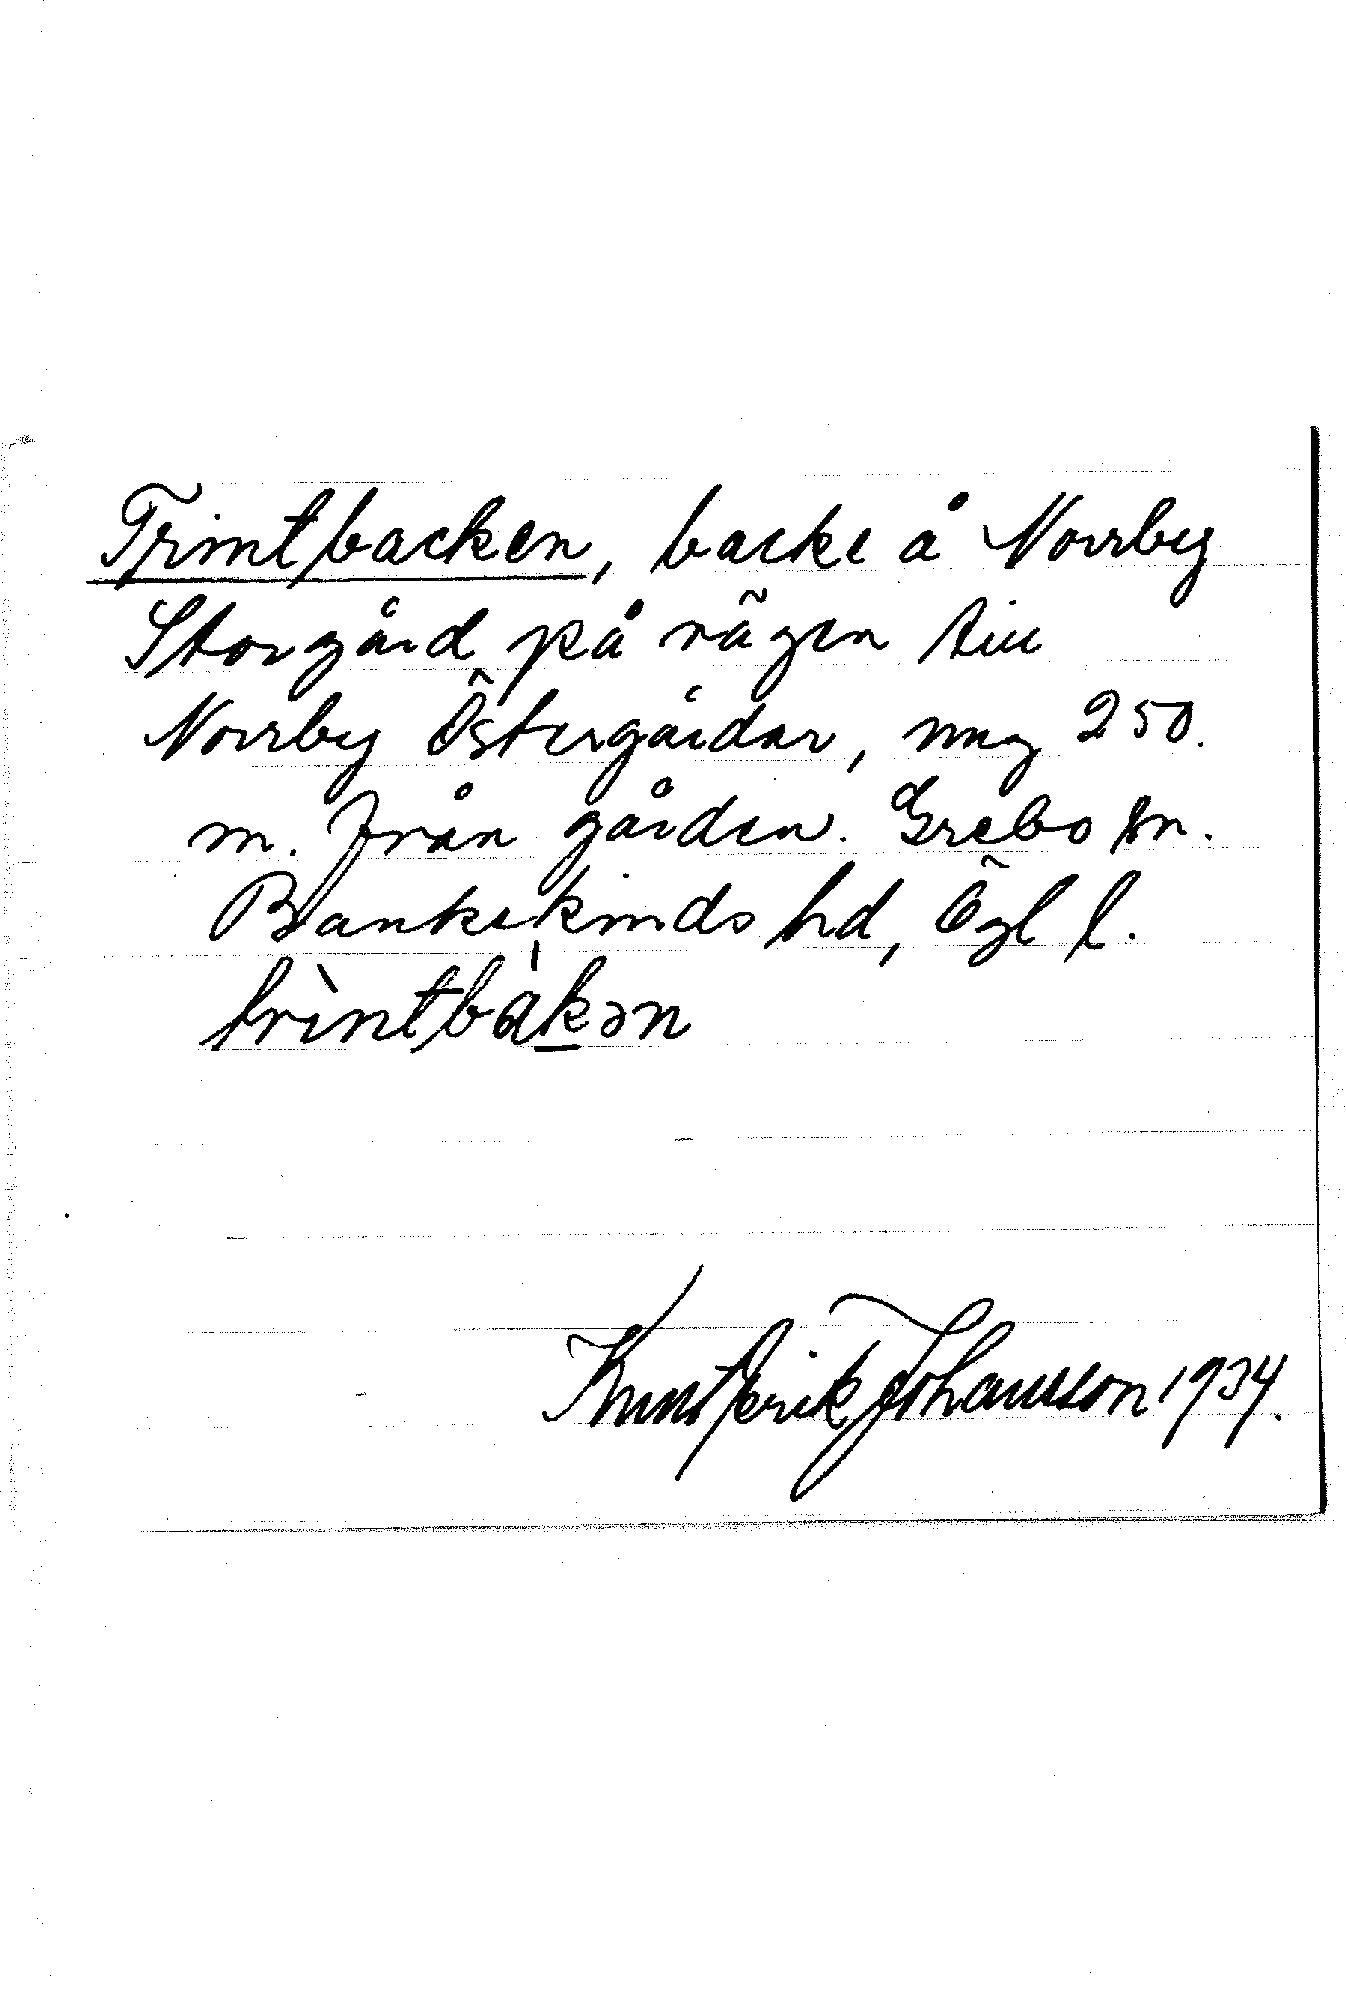 Trintbacken, backe å Norrby
Storgård på vägen till
Norrby Östergårdar, ung 250.
m. från gården. Grebo sn.
Bankekinds hd, Ögl l.
trìntbàkən
Knut Erik Johansson 1934.